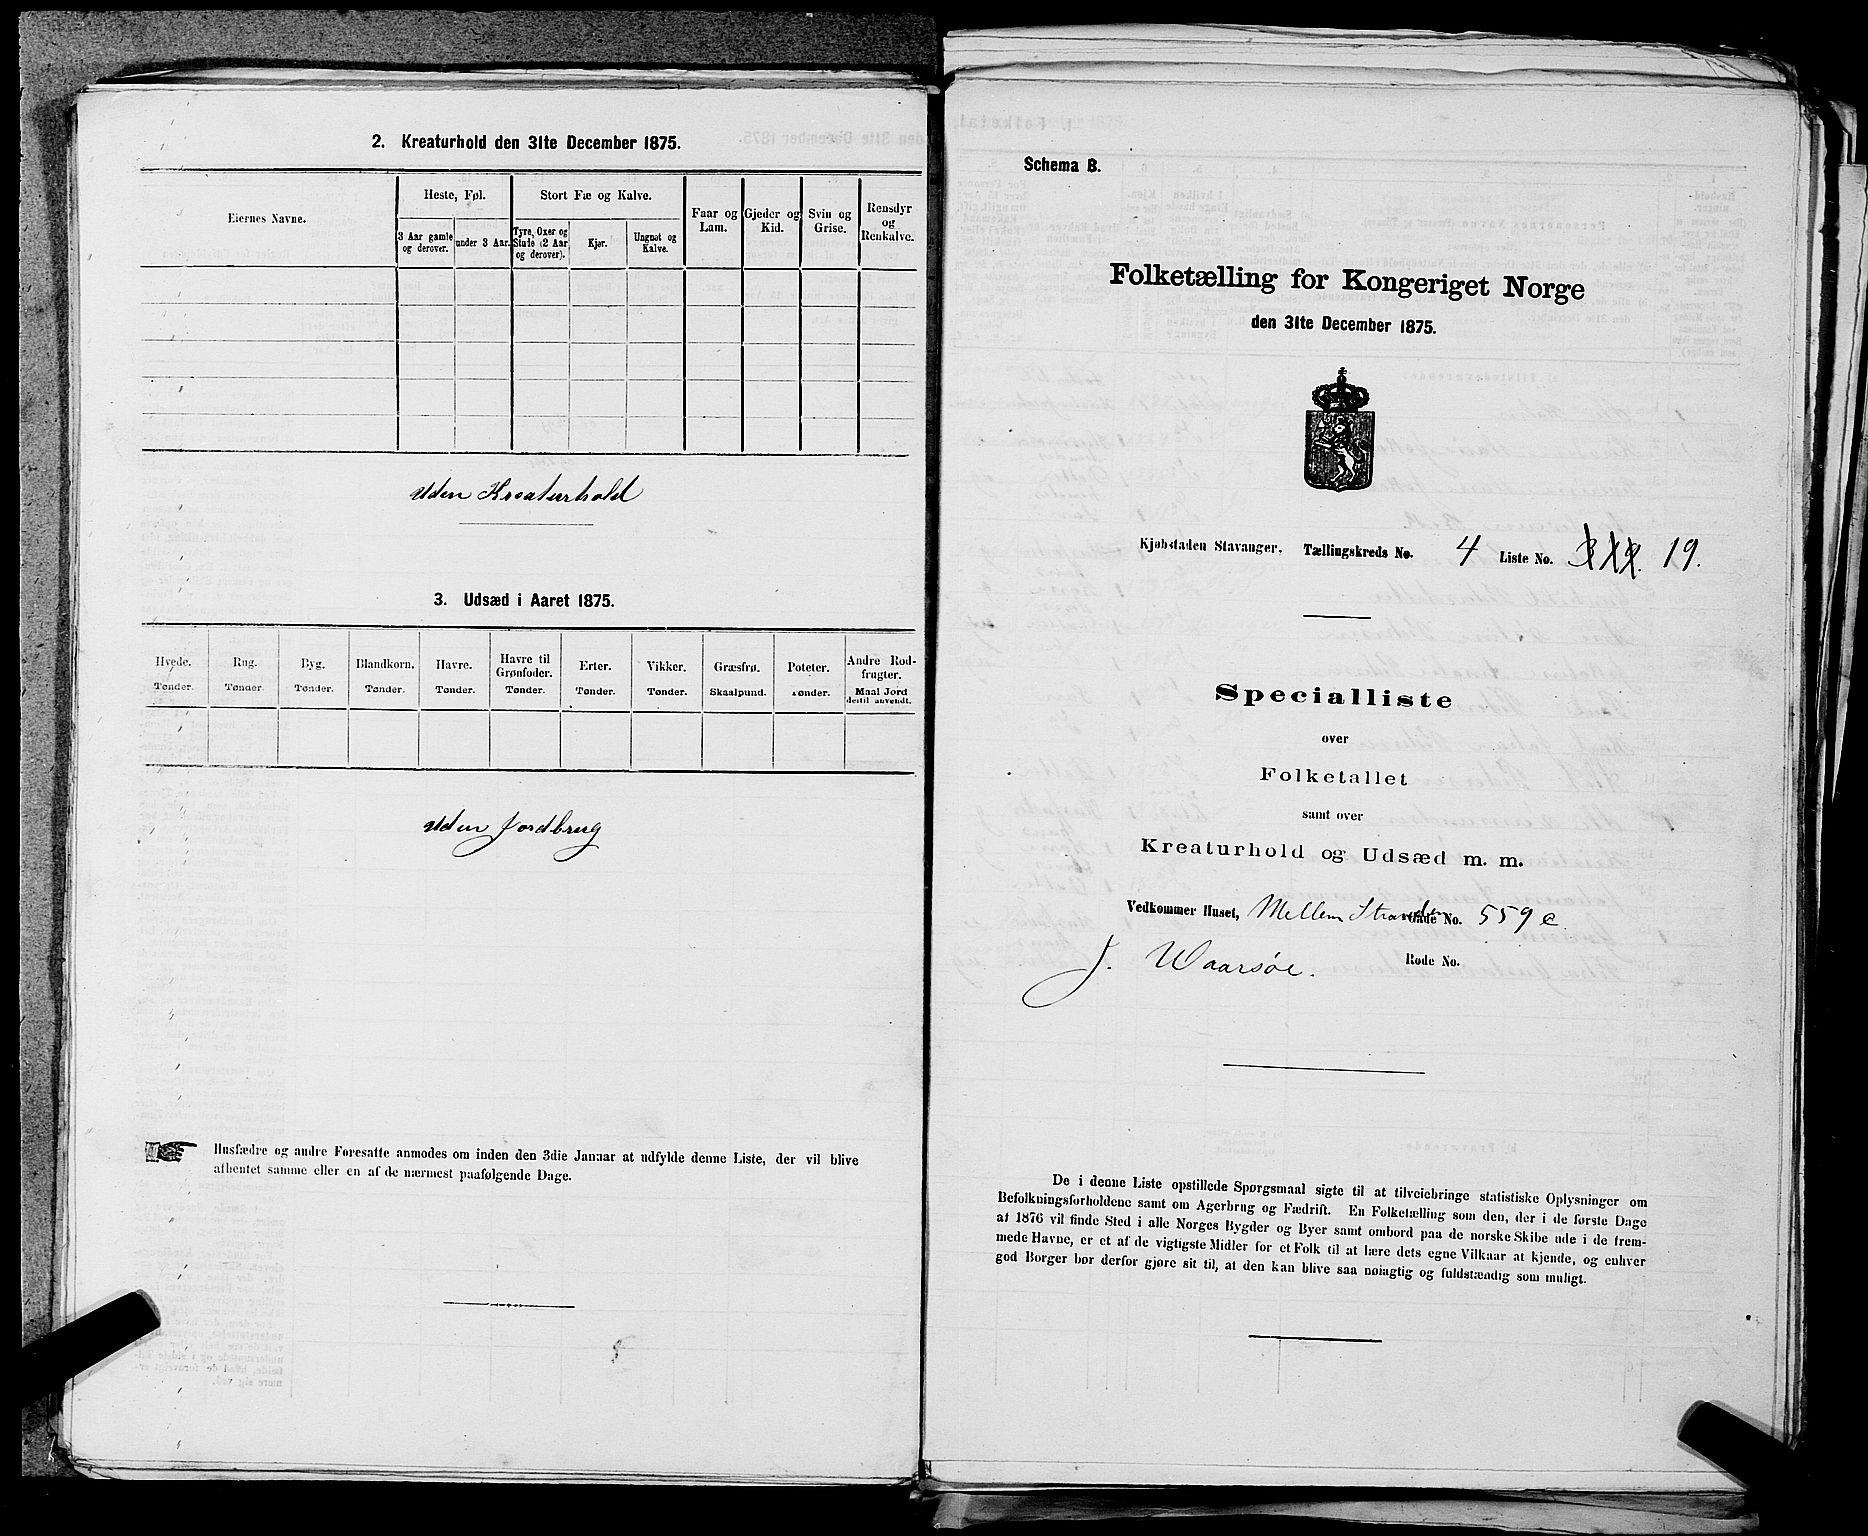 2. Kreaturhold den 31te December 1875.
Eiernes Navne.
Heste, Føl.
3 Aar gamle og derover.
under 3 Aar.
Stort Fæ og Kalve.
Tyre, Oxer og Stude (2 Aar og derover).
Kjør.
Ungnøt og Kalve.
Faar og Lam.
Gjeder og Kid.
Svin og Grise.
Rensdyr og Renkalve.
Uden Kreaturhold
3. Udsæd i Aaret 1875.
Hvede. Rug. Byg. Blandkorn. Havre. Havre til Grønfoder. Erter. Vikker. Græsfrø. Poteter. Andre Rodfrugter.
Tønder. Tønder. Tønder. Tønder. Tønder. Tønder. Tønder. Tønder. Skaalpund. Tønder. Maal Jord dertil anvendt.
Uden Jordbrug
Husfædre og andre Foresatte anmodes om inden den 3die Januar at udfylde denne Liste, der vil blive
afhentet samme eller en af de nærmest paafølgende Dage.
Schema B.
Folketælling for Kongeriget Norge
den 31te December 1875.
Kjøbstaden Stavanger. Tællingskreds No. 4 Liste No. 19.
Specialliste
over
Folketallet
samt over
Kreaturhold og Udsæd m. m.
Vedkommer Huset, Mellem Stranden Gade No. 559 c.
J. Waarsøe. Rode No.
De i denne Liste opstillede Spørgsmaal sigte til at tilveiebringe statistiske Oplysninger om
Befolkningsforholdene samt om Agerbrug og Fædrift. En Folketælling som den, der i de første Dage
af 1876 vil finde Sted i alle Norges Bygder og Byer samt ombord paa de norske Skibe ude i de frem-
mede Havne, er et af de vigtigste Midler for et Folk til at lære dets egne Vilkaar at kjende, og enhver
god Borger bør derfor gjøre sit til, at den kan blive saa nøiagtig og fuldstændig som muligt.